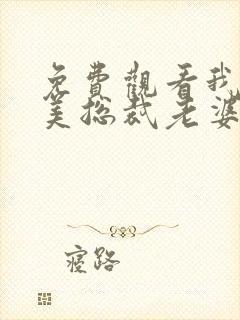 免費觀看我
美總裁老婆
寢路